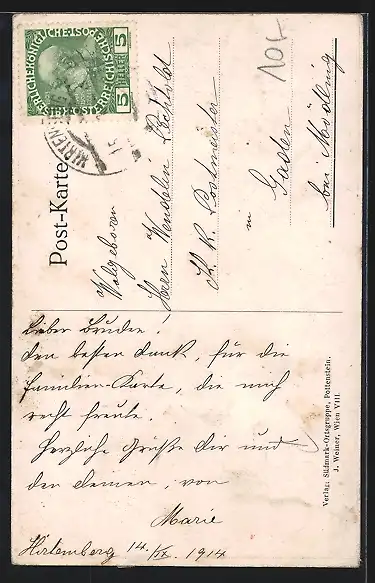 KAISERLICHE KÖNIGLICHE ÖSTERREICHISCHE POST
5 HELLER 5
HIRTEN
15
Post-Karte
10f
Wolgeboren
Herrn Wendelin
K. K. Postmeister
in Gaden
bei Mödling
Lieber Bruder!
den besten Dank, für die
Familien-Karte, die mich
recht freute.
Herzliche Grüße Dir und
den deinen, von
Marie
Hirtenberg 14./IX. 1914
Verlag: Südmark-Ortsgruppe, Pottenstein.
J. Weiner, Wien VIII.